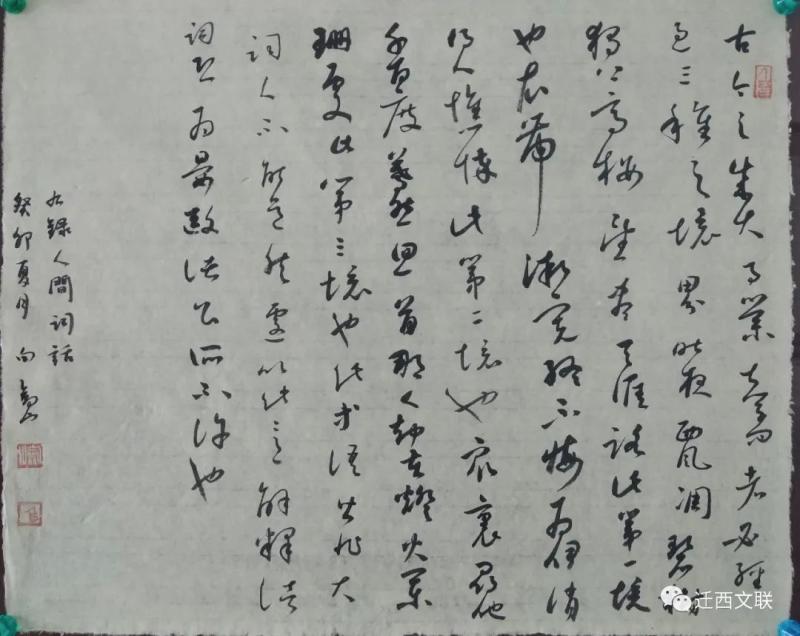 古今之成大事業大學問者必經
過三種之境界昨夜西風凋碧樹
獨上高樓望盡天涯路此第一境
也衣帶漸寬終不悔為伊消
得人憔悴此第二境也眾裏尋他
千百度驀然回首那人卻在燈火闌
珊處此第三境也此等語皆非大
詞人不能道然遽以此意解釋諸
詞恐為晏歐諸公所不許也
右錄人間詞話
癸卯夏月向
迁西文联